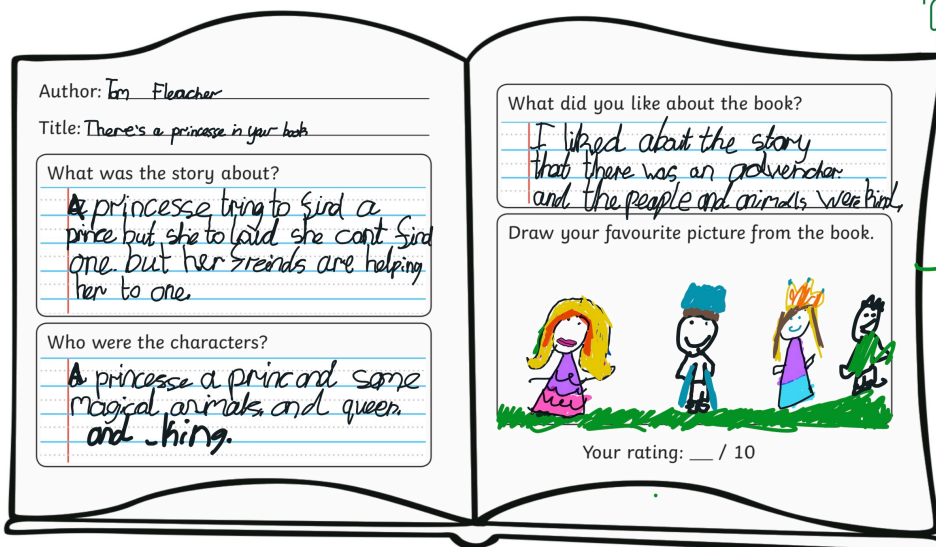 Author: Tom Fleacher
Title: There's a princesse in your book
What was the story about?
A princesse tring to find a
prince but she to loud she cant find
one. but her freinds are helping
her to one.
Who were the characters?
A princesse a princ and some
magical animals. and queen.
and king.
What did you like about the book?
I liked about the story
that there was an advencher
and the people and animals were kind,
Draw your favourite picture from the book.
Your rating: __ / 10